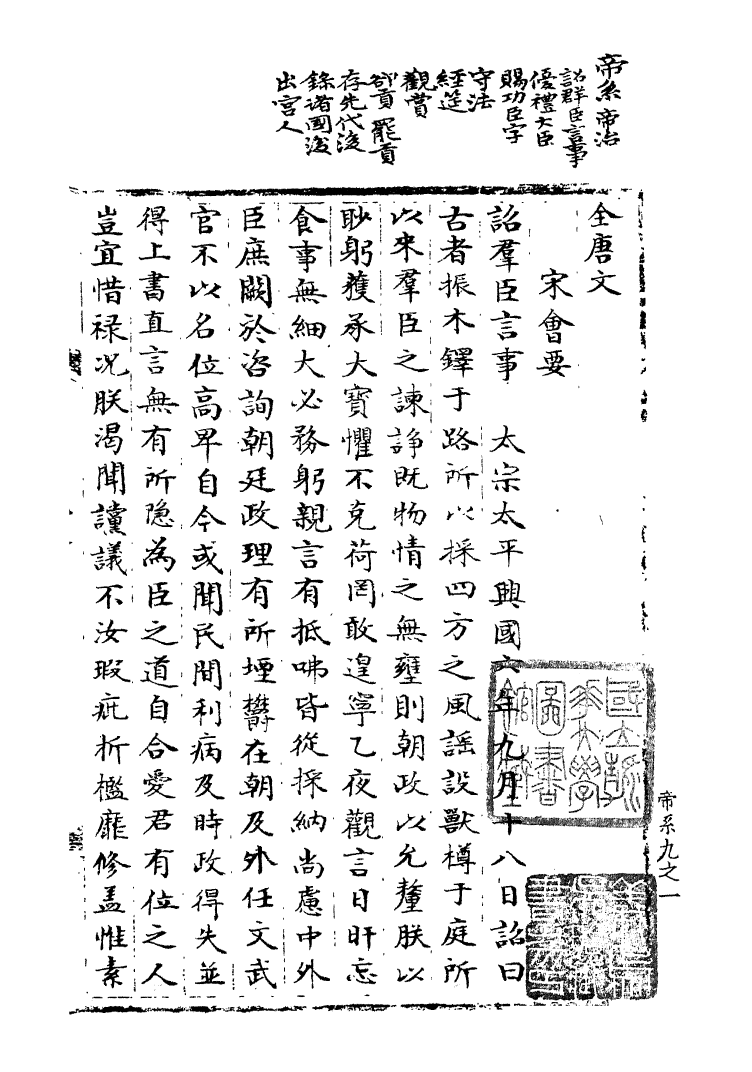 帝系帝治
詔群臣言事
優禮大臣
賜功臣字
守法
經筵
觀賞
卻貢 罷貢
存先代後
錄諸國後
出宮人
全唐文
宋會要
詔羣臣言事 太宗太平興國六年九月二十八日詔曰
古者振木鐸于路所以採四方之風謡設獸樽于庭所
以來羣臣之諫諍既物情之無壅則朝政以允釐朕以
眇躬獲承大寶懼不克荷罔敢遑寧乙夜觀言日旰忘
食事無細大必務躬親言有抵咈皆從採納尚慮中外
臣庶闕於咨詢朝廷政理有所堙欝在朝及外任文武
官不以名位高卑自今或聞民間利病及時政得失並
得上書直言無有所隐為臣之道自合愛君有位之人
豈宜惜禄况朕渴聞讜議不汝瑕疵折檻靡修盖惟素
帝系九之一